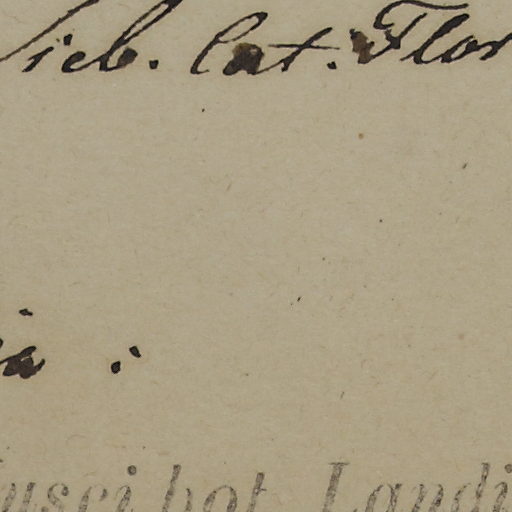 Sieb. Cat. Flor
ia :
usci bot. Landi